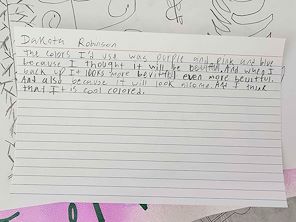 Dakota Robinson
The colors I'd use was purple and pink and blue
because I thought it will be beutiful. And when I
back up it looks more beutiful even more beutiful.
And also because it will look nice. And I think
that it is cool colored.